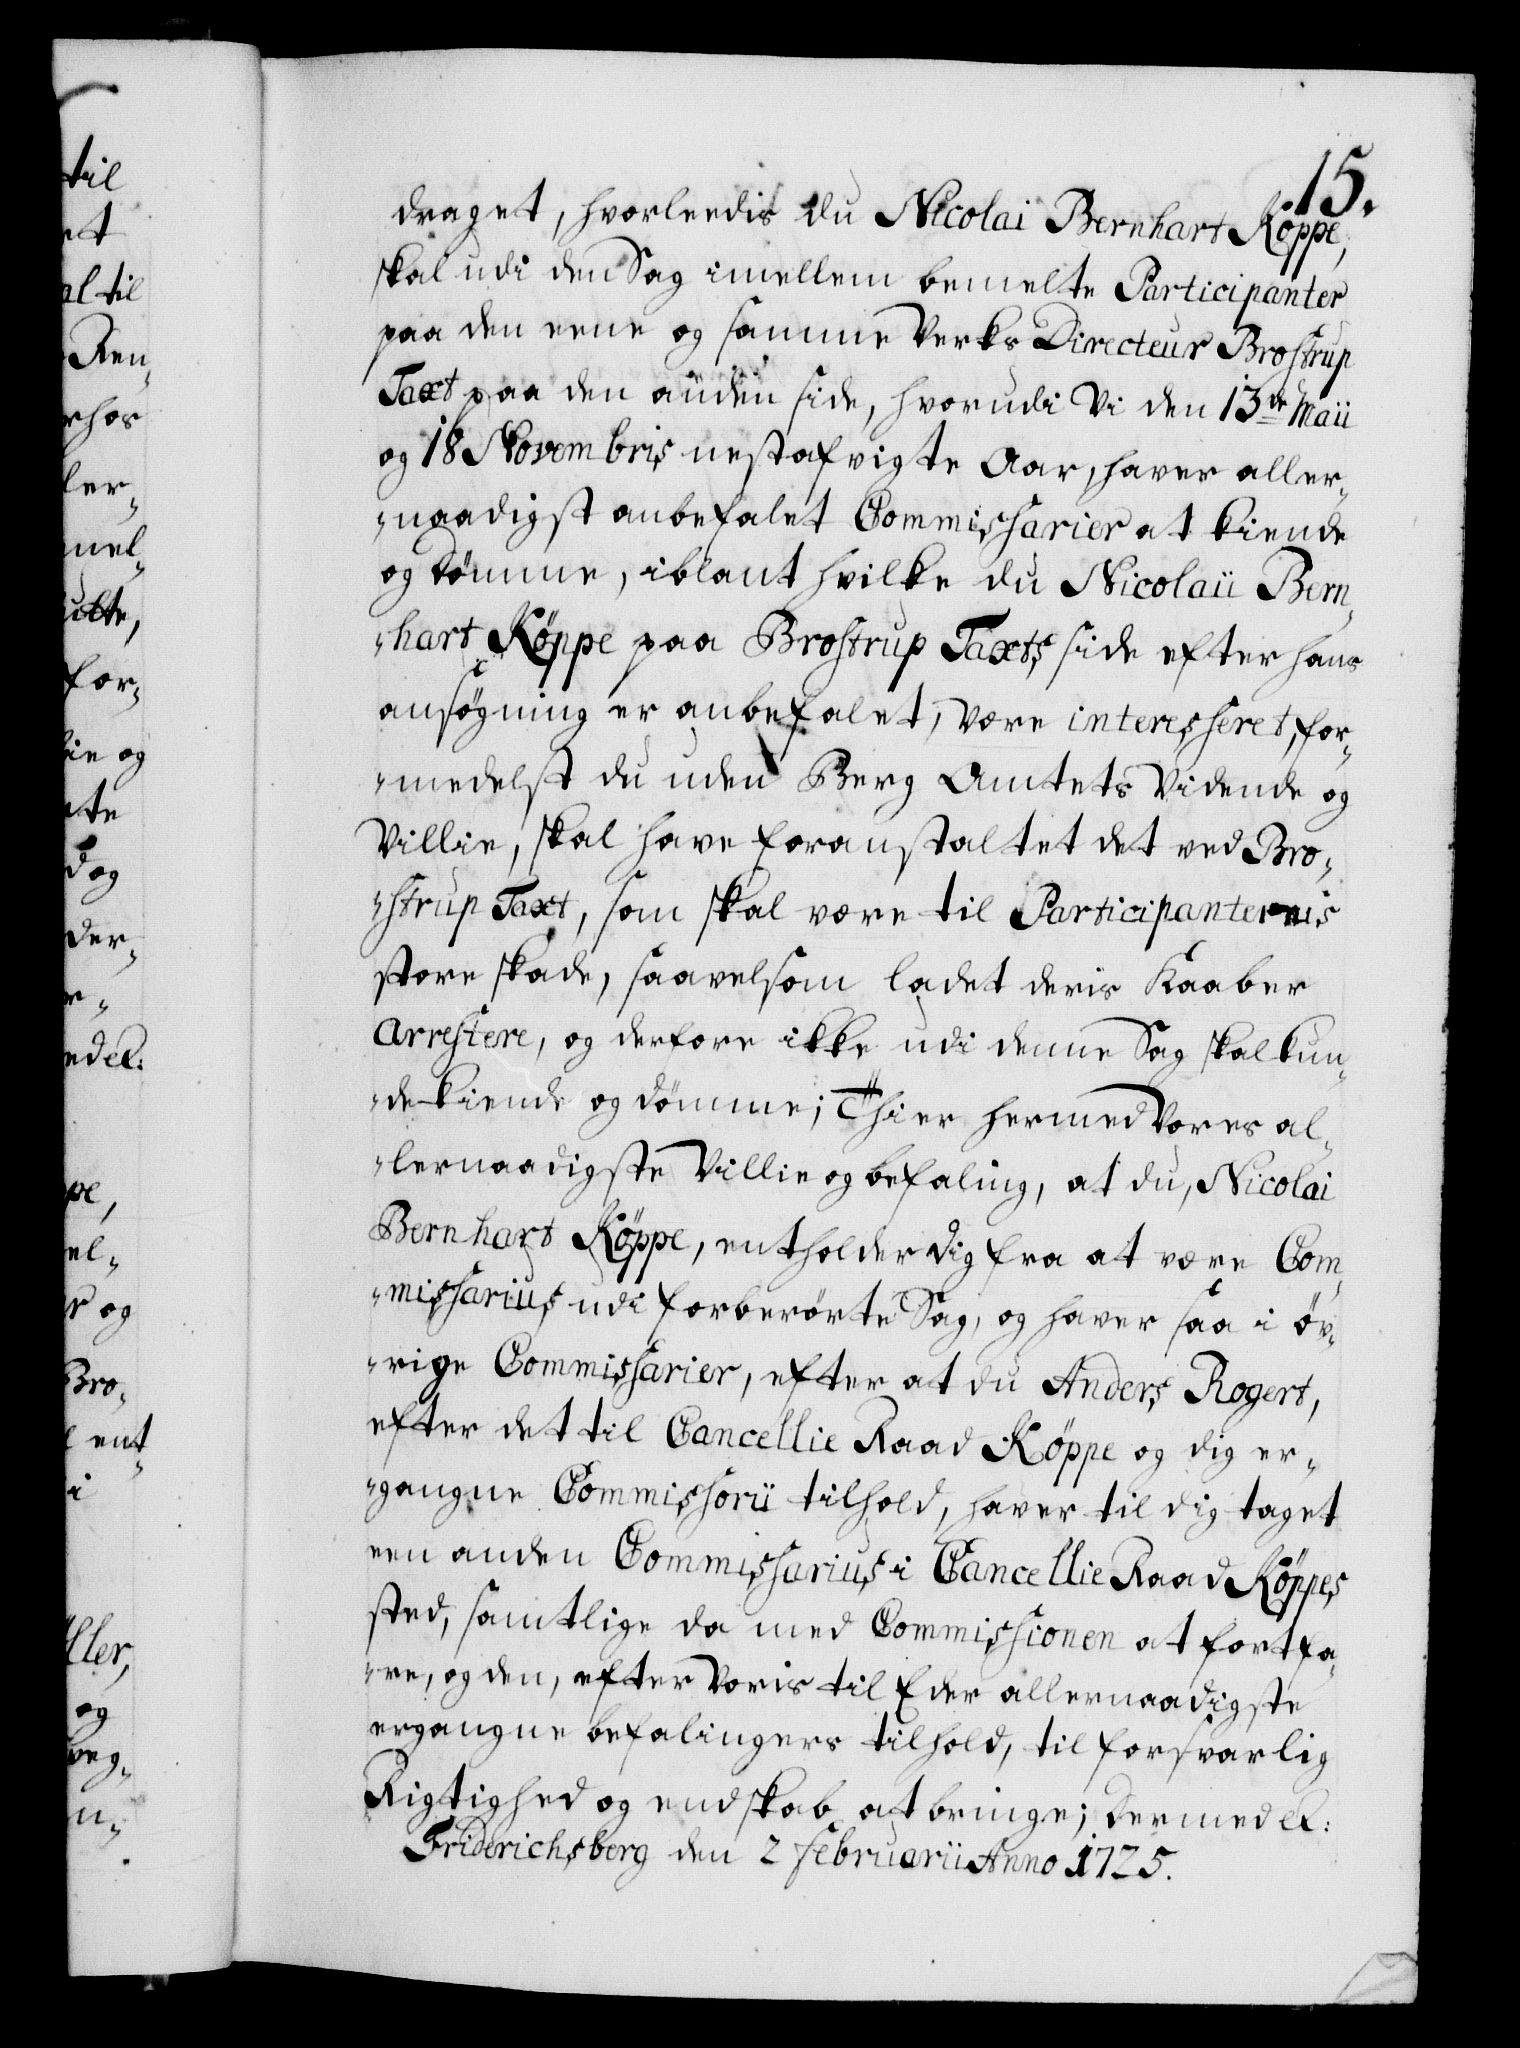 til
et
al til
Ren-
erhos
ler-
mel-
ulte,
for-
lie og
te
d og
der-
r-
med &:
pe,
el-
r og
Bro-
l ent-
i
ller,
og
veg-
n-
15.
draget, hvorleedis du Nicolai Bernhart Köppe,
skal udi den Sag imellem bemelte Participanter
paa den eene og samme Verks Directeur Brostrup
Taxt paa den anden side, hvorudi Vi den 13de Maii
og 18 Novembris nestafvigte Aar, haver aller-
-naadigst anbefalet Commissarier at kiende
og dömme, iblant hvilke du Nicolaii Bern-
-hart Köppe paa Brostrup Taxts side efter hans
ansøgning er anbefalet, være interesseret, for-
-medelst du uden Berg Amtets Vidende og
Villie, skal have foranstaltet det ved Bro-
-strup Taxt, som skal være til Participanternis
store skade, saavelsom ladet deris Kaaber
arrestere, og derfore ikke udi denne Sag skal kun-
-de kiende og dömme; Thi er hermed Vores al-
-lernaadigste Villie og befaling, at du, Nicolai
Bernhart Köppe, entholder dig fra at være Com-
-missarius udi forberörte Sag, og haver saa i öv-
-rige Commissarier, efter at du Anders Rogert,
efter det til Cancellie Raad Köppe og dig er-
-gangne Commissorii tilhold, haver til dig taget
een anden Commissarius i Cancellie Raad Köppes
sted, samtlige da med Commissionen at fortfa-
-re, og den, efter Voris til Eder allernaadigste
ergangne befalingers tilhold, til forsvarlig
Rigtighed og endskab at bringe; Dermed &:
Friderichsberg den 2 Februarii Anno 1725.